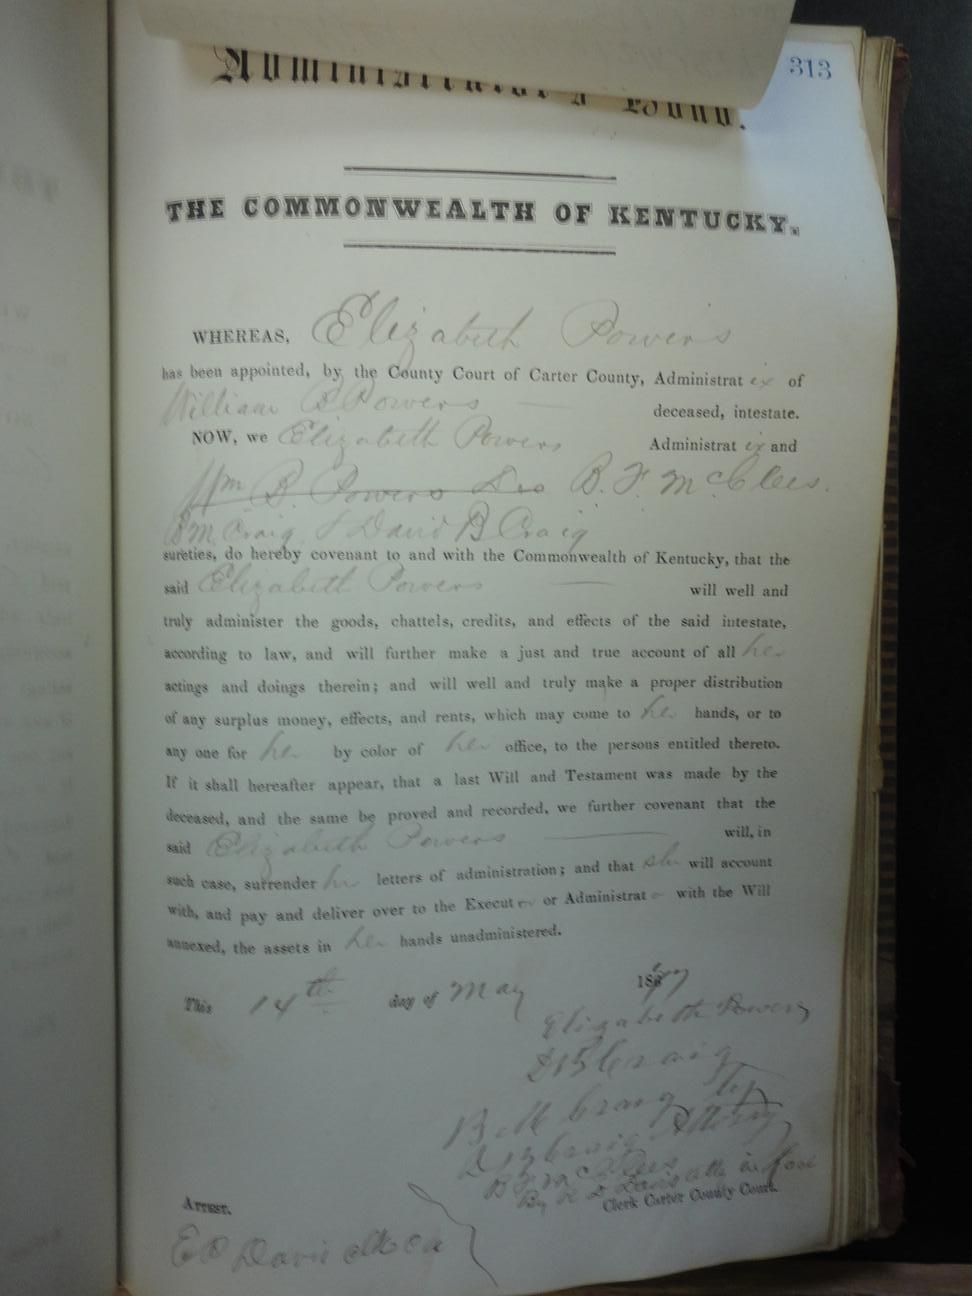 313
Administrator's Bond.
THE COMMONWEALTH OF KENTUCKY.
WHEREAS, Elizabeth Powers
has been appointed, by the County Court of Carter County, Administrat ex of
William B Powers deceased, intestate.
NOW, we Elizabeth Powers Administrat ex and
Wm B. Powers Dec B. F. McClees.
B M Craig & David B Craig
sureties, do hereby covenant to and with the Commonwealth of Kentucky, that the
said Elizabeth Powers will well and
truly administer the goods, chattels, credits, and effects of the said intestate,
according to law, and will further make a just and true account of all her
actings and doings therein; and will well and truly make a proper distribution
of any surplus money, effects, and rents, which may come to her hands, or to
any one for her by color of her office, to the persons entitled thereto.
If it shall hereafter appear, that a last Will and Testament was made by the
deceased, and the same be proved and recorded, we further covenant that the
said Elizabeth Powers will, in
such case, surrender her letters of administration; and that she will account
with, and pay and deliver over to the Execut or or Administrat or with the Will
annexed, the assets in her hands unadministered.
This 14th day of May 1877
Elizabeth Powers
D B Craig
B M Craig by
D B Craig Attorny
B F McClees
By Davis atty in fact
Attest. Clerk Carter County Court.
E D Davis